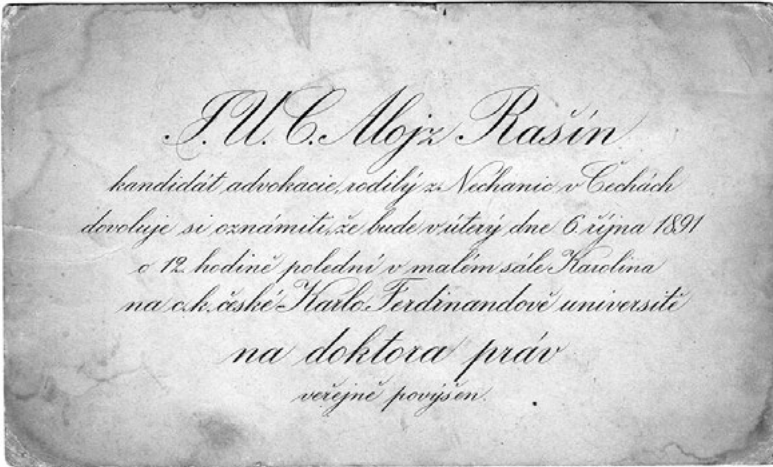 J.U.C. Alojz Rašín
kandidát advokacie, rodilý z Nechanic v Čechách
dovoluje si oznámiti, že bude v úterý dne 6. října 1891
o 12. hodině polední v malém sále Karolina
na c.k. české Karlo-Ferdinandově universitě
na doktora práv
veřejně povýšen.